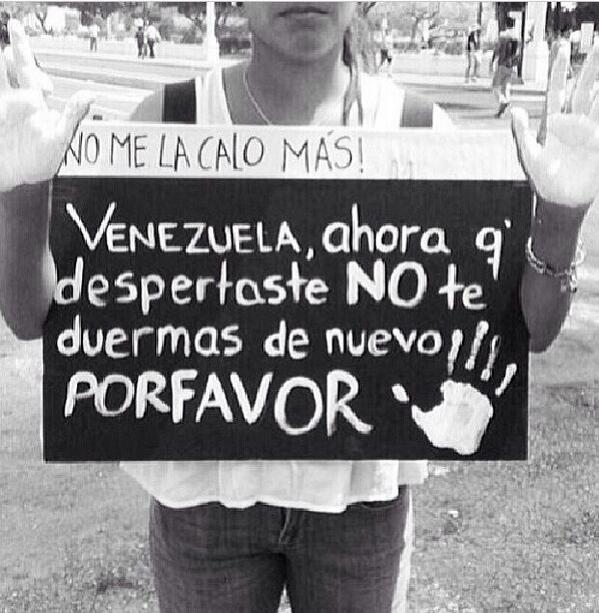 NO ME LA CALO MÁS!
VENEZUELA, ahora q'
despertaste NO te
duermas de nuevo!!!!
PORFAVOR